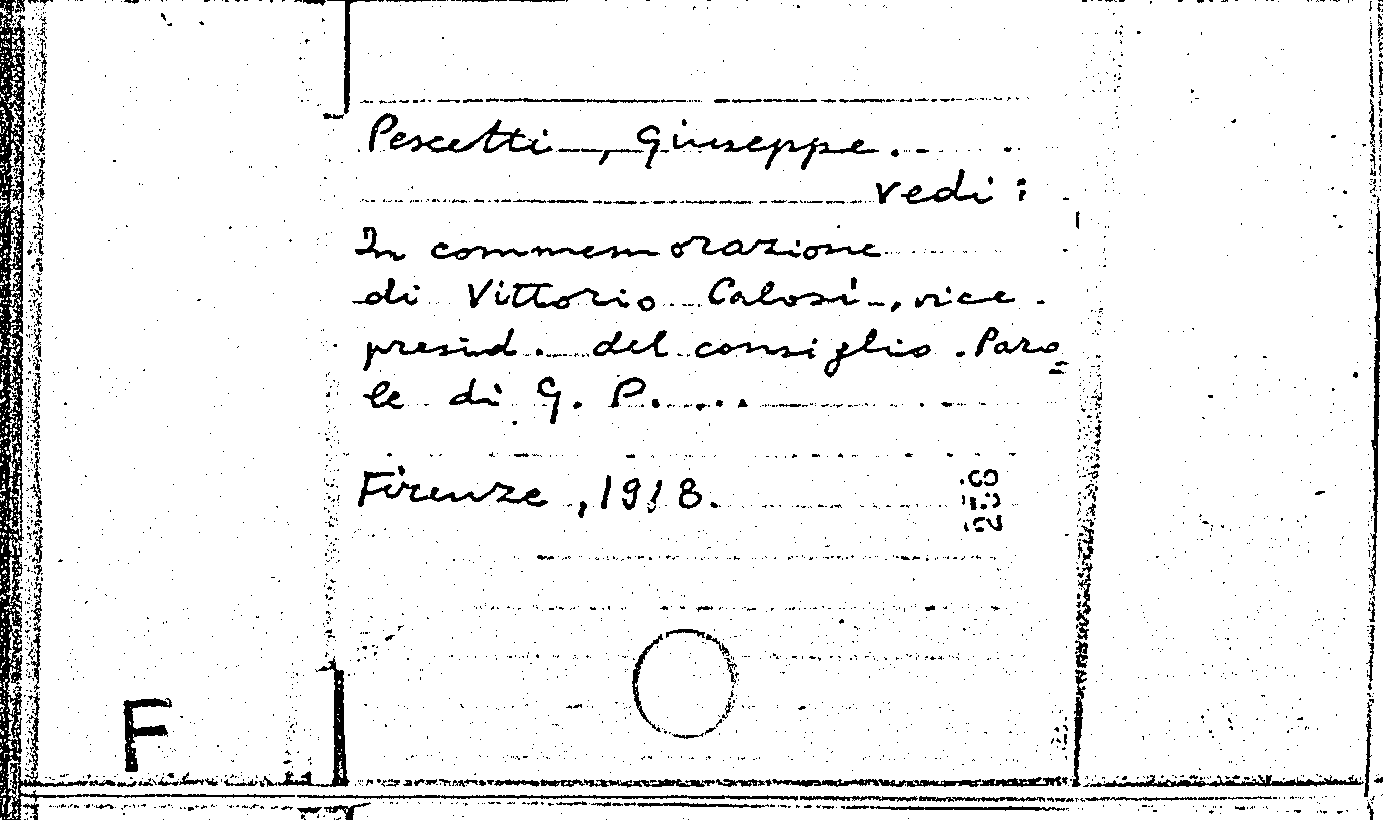 Pescetti, Giuseppe.
vedi:
In commemorazione
di Vittorio Calosi, vice
presid. del consiglio. Paro=
le di G. P....
Firenze, 1918.
F